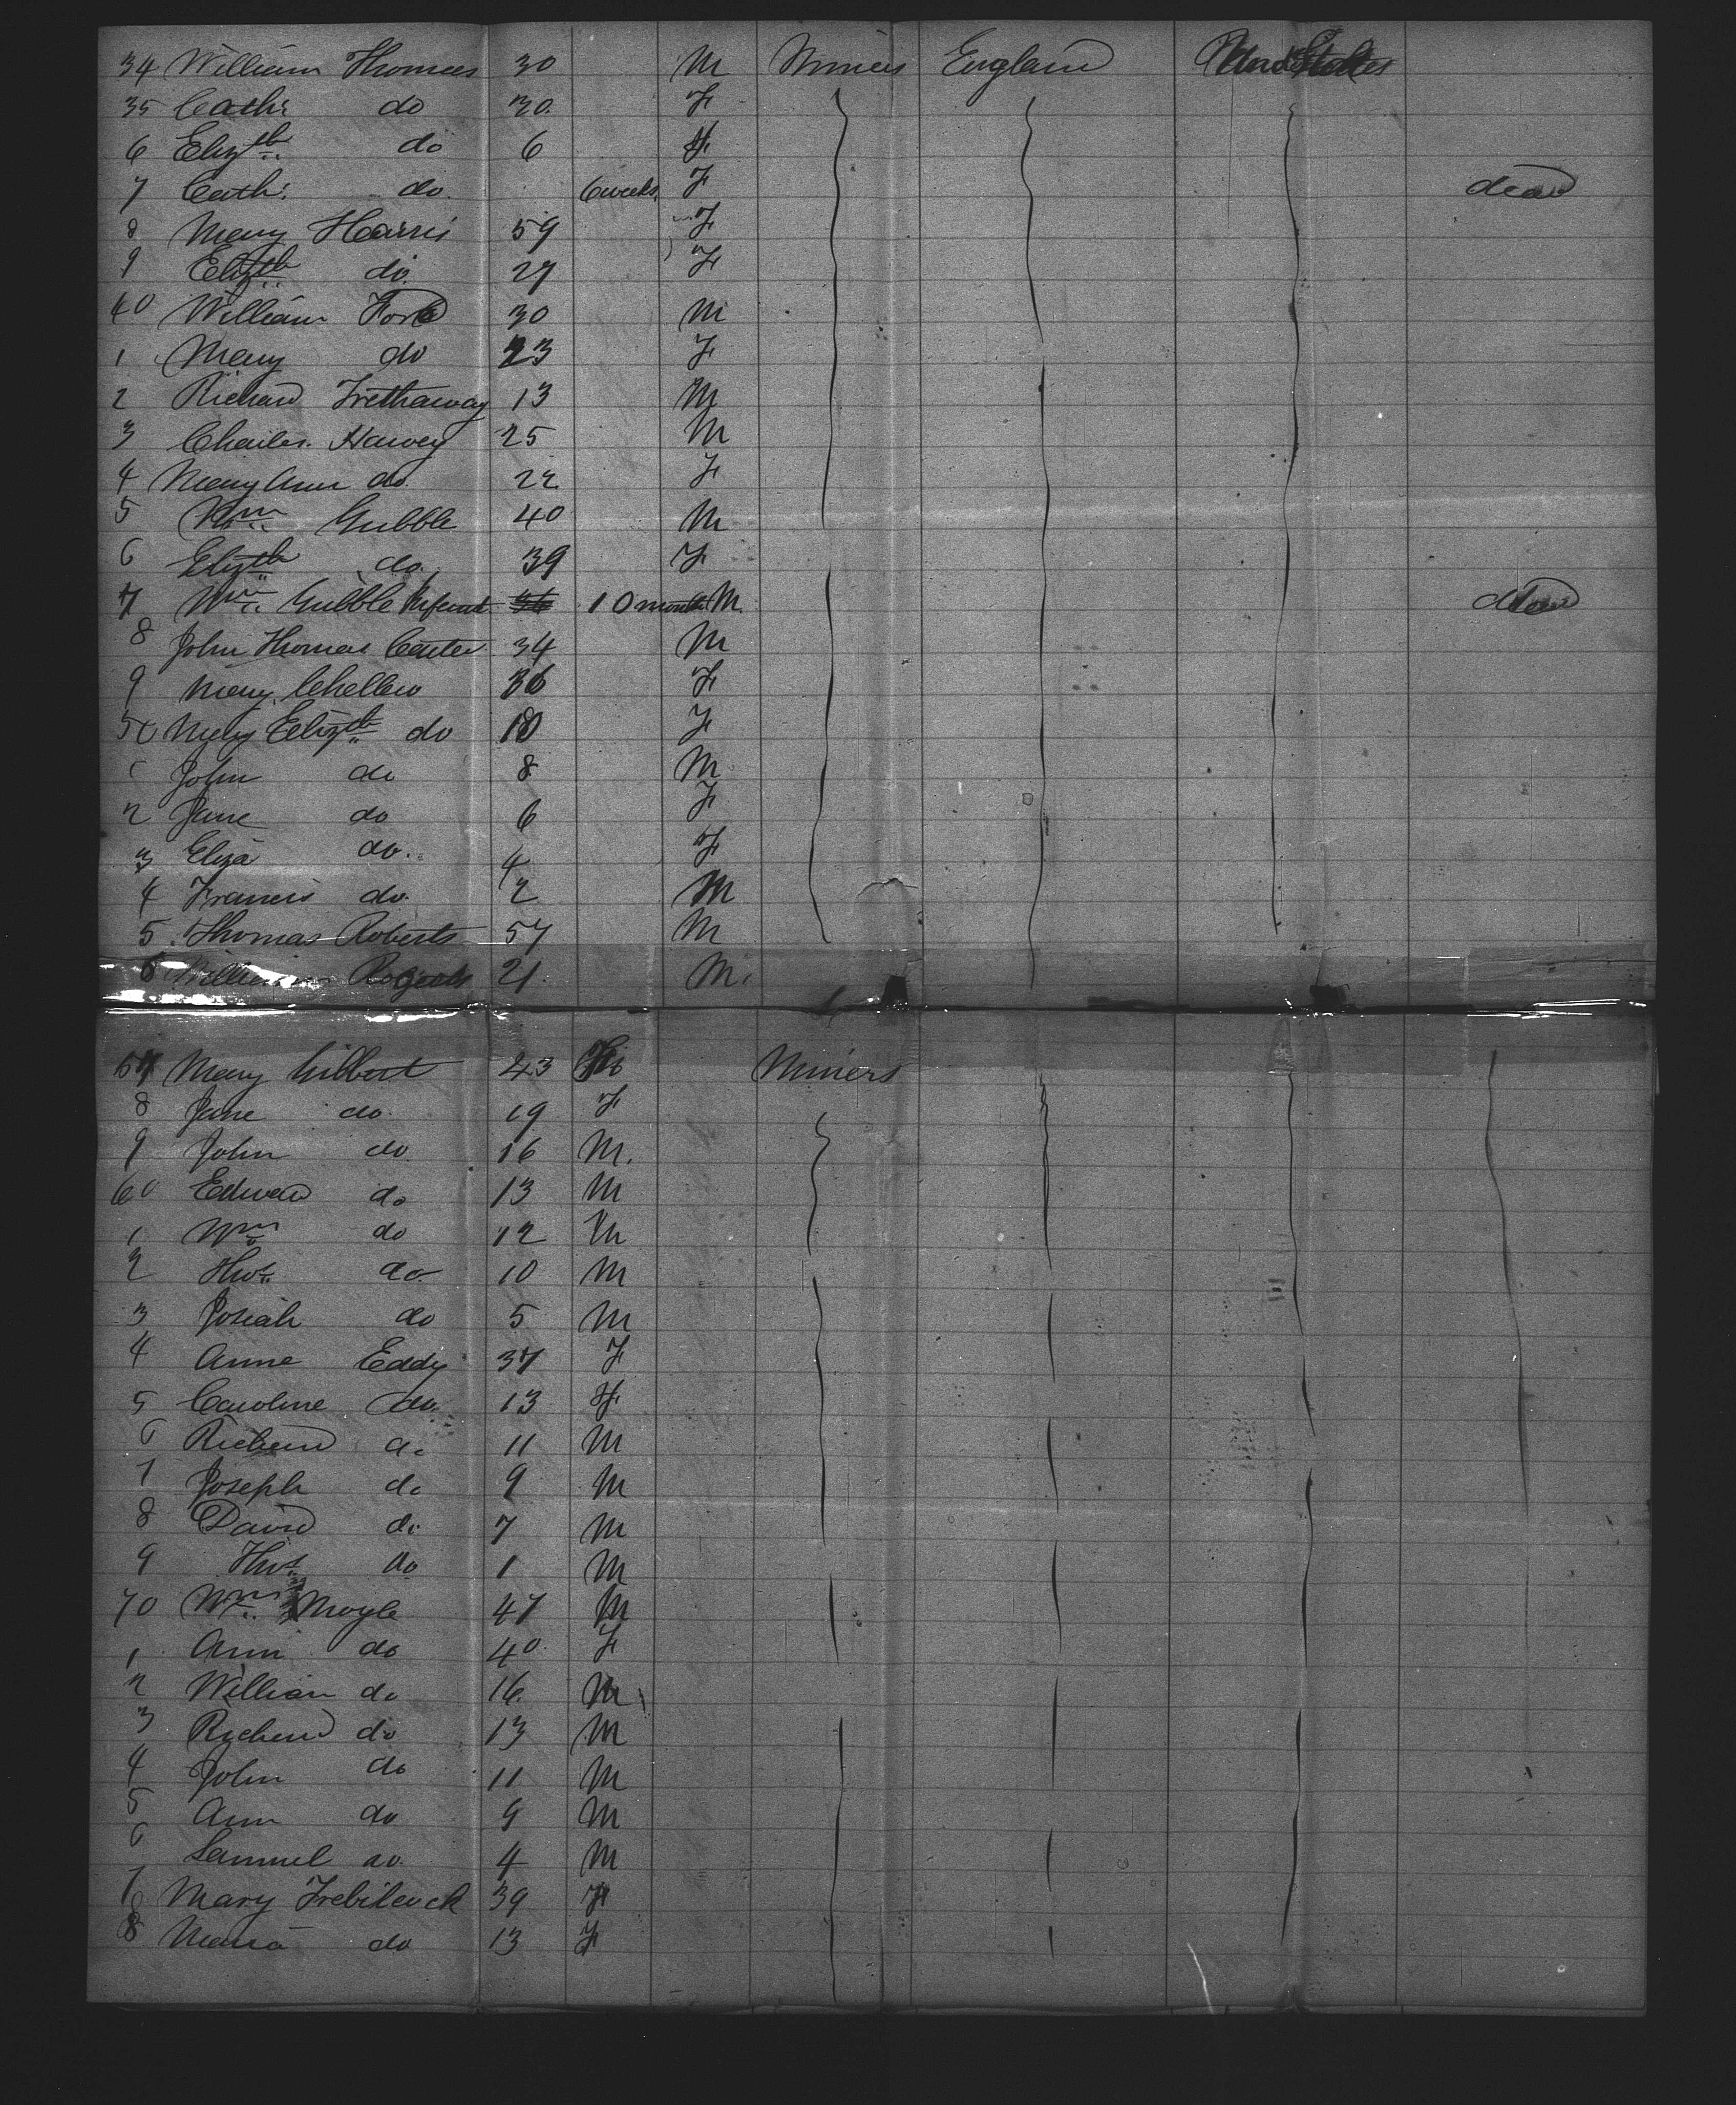 34 William Thomas 30 M Miners England United States
35 Cath: do 30 F
6 Elizth do 6 F
7 Cath: do 6 weeks F dead
8 Mary Harris 59 F
9 Elizth do 27 F
40 William Ford 30 M
1 Mary do 23 F
2 Richard Trethaway 13 M
3 Charles Harvey 25 M
4 Mary Ann do 22 F
5 Wm Gubble 40 M
6 Elizth do 39 F
7 Wm Gubble Infant 10 months M dead
8 John Thomas Carter 34 M
9 Mary Chellew 36 F
50 Mary Elizth do 10 F
1 John do 8 M
2 Jane do 6 F
3 Eliza do 4 F
4 Francis do 2 M
5 Thomas Roberts 57 M
6 William 21 M
57 Mary Gilbert 43 Miners
8 Jane do 19 F
9 John do 16 M
60 Edward do 13 M
1 Wm do 12 M
2 Thos do 10 M
3 Josiah do 5 M
4 Anne Eddy 37 F
5 Caroline do 13 F
6 Richard do 11 M
7 Joseph do 9 M
8 David do 7 M
9 Thos do 1 M
70 Wm Moyle 47 M
1 Ann do 40 F
2 William do 16 M
3 Richard do 13 M
4 John do 11 M
5 Ann do 9 M
6 Samuel do 4 M
7 Mary Trebilcock 39 F
8 Maria do 13 F